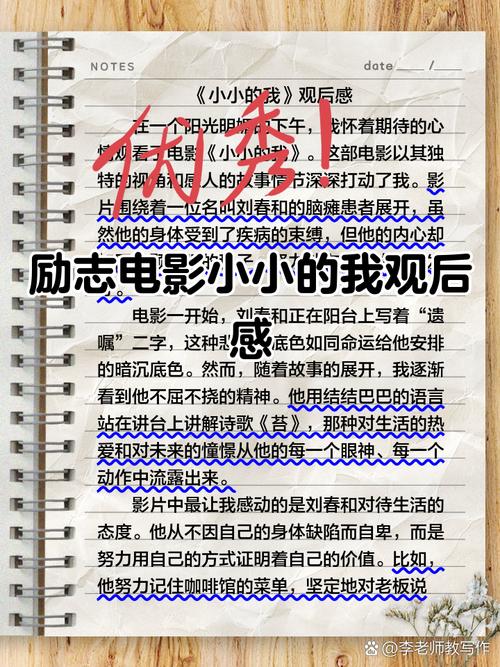 NOTES
date ____ / ____
《小小的我》观后感
在一个阳光明媚的下午，我怀着期待的心
情观看了电影《小小的我》。这部电影以其独
特的视角和感人的故事情节深深打动了我。影
片围绕着一位名叫刘春和的脑瘫患者展开，虽
然他的身体受到了疾病的束缚，但他的内心却
优秀！
励志电影小小的我观后
感
电影一开始，刘春和正在阳台上写着“遗
嘱”二字，这种悲 底色如同命运给他安排
的暗沉底色。然而，随着故事的展开，我逐渐
看到他不屈不挠的精神。他用结结巴巴的语言
站在讲台上讲解诗歌《苔》，那种对生活的热
爱和对未来的憧憬从他的每一个眼神、每一个
动作中流露出来。
影片中最让我感动的是刘春和对待生活的
态度。他从不因自己的身体缺陷而自卑，而是
努力用自己的方式证明着自己的价值。比如，
他努力记住咖啡馆的菜单，坚定地对老板说
李老师教写作